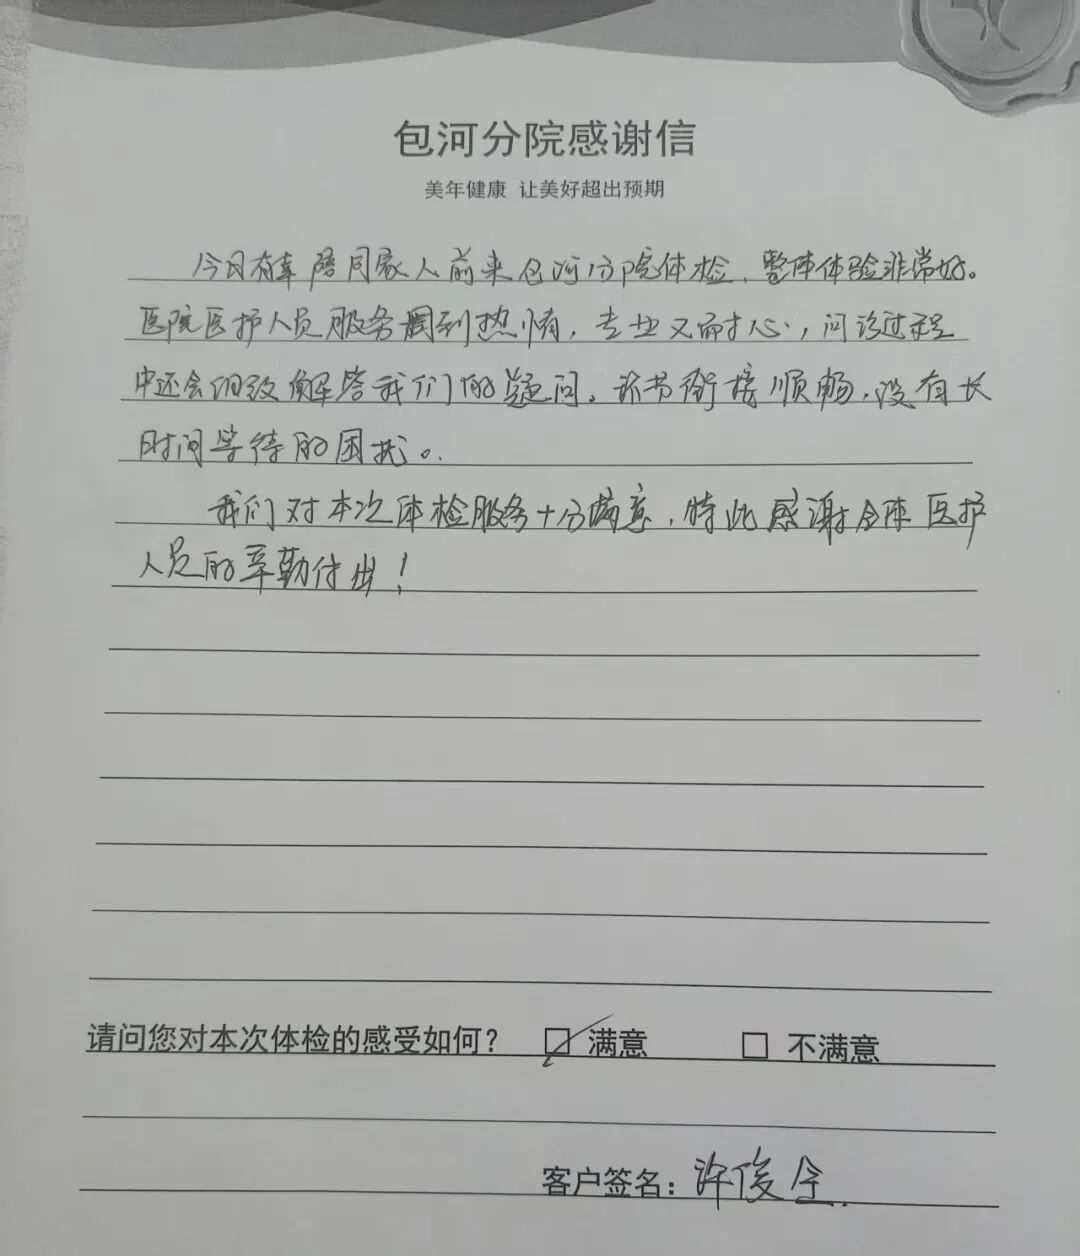 包河分院感谢信
美年健康 让美好超出预期
今日有幸陪同家人前来包河分院体检，整体体验非常好。
医院医护人员服务周到热情，专业又耐心，问诊过程
中还会细致解答我们的疑问。环节衔接顺畅，没有长
时间等待的困扰。
我们对本次体检服务十分满意，特此感谢全体医护
人员的辛勤付出！
请问您对本次体检的感受如何？ ☑ 满意 □ 不满意
客户签名：许俊全